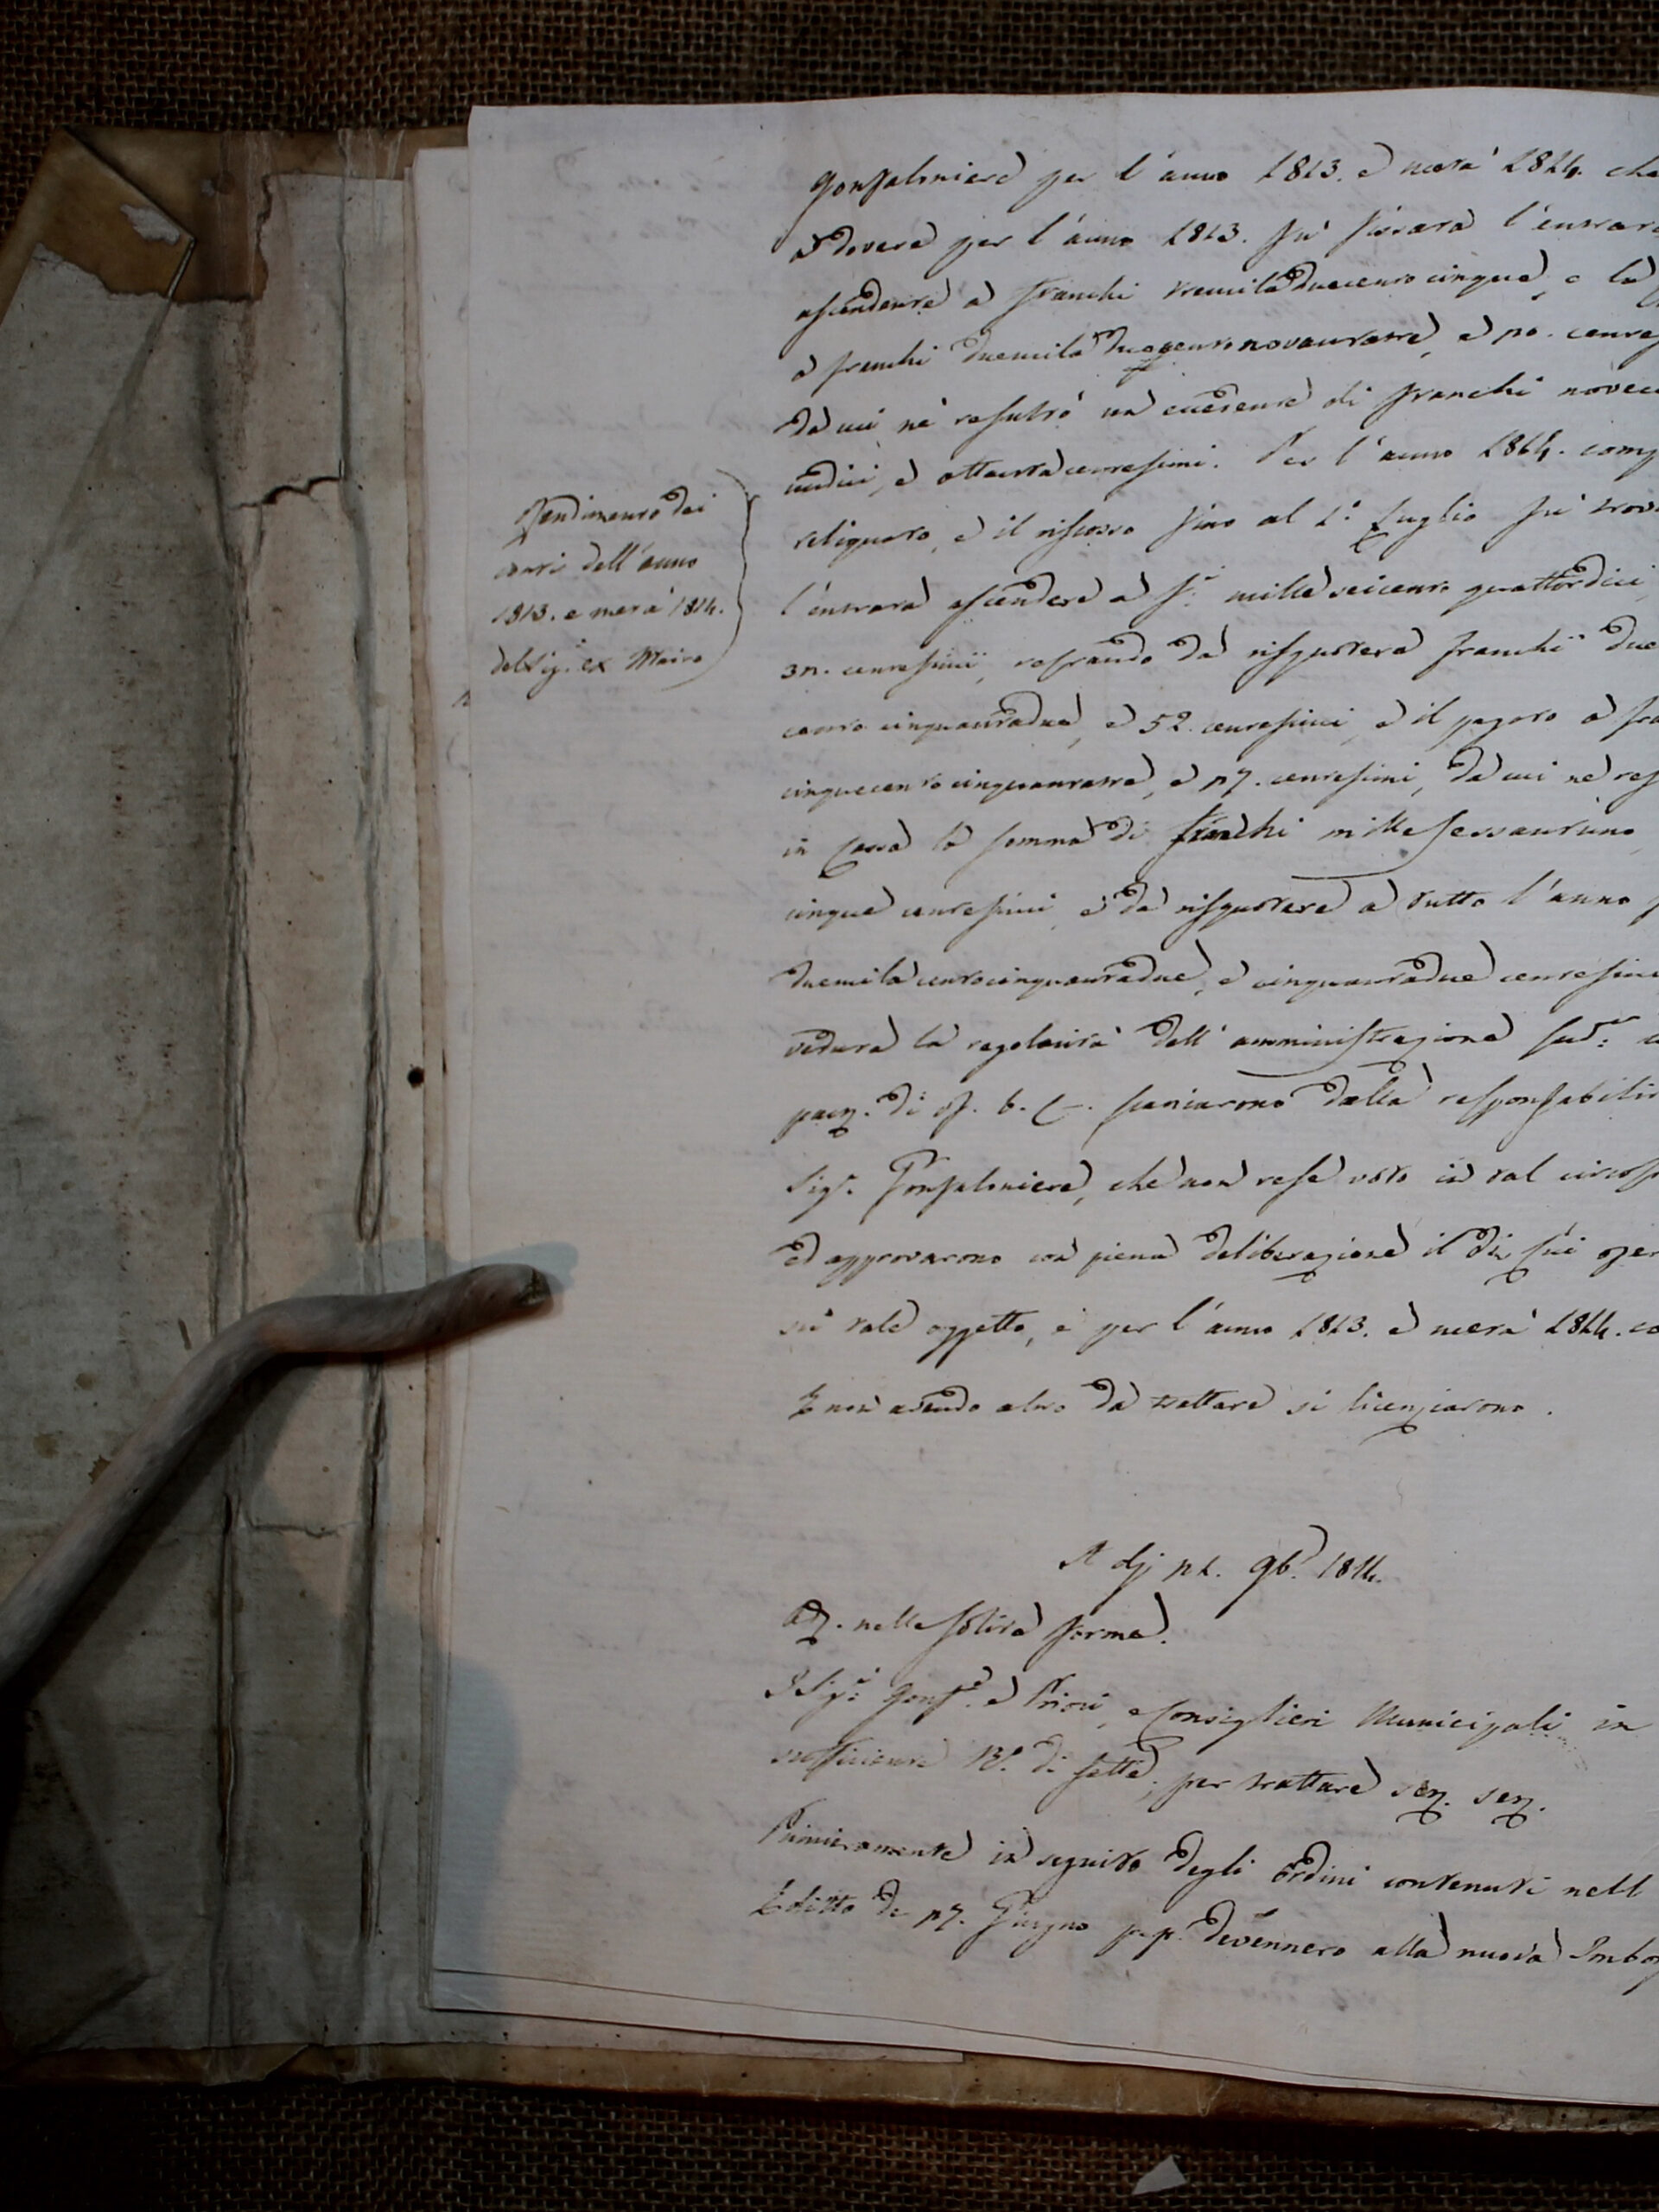 Gonfaloniere per l'anno 1813. e metà 1814. che
e dovere per l'anno 1813. fù l'entrara
ascendere a franchi tremiladuecento cinque, e la
a franchi duemila duecento novantatre, e 20. centes
da cui nè resultò un eccedente di franchi novece
undici, e ottanta centesimi. Per l'anno 1814. comp
reliquato, e il riscosso sino al 1º Luglio fù trov
l'entrata ascendere a f.ⁱ mille seicento quattordici
32. centesimi, restando da riscuotere franchi due
cento cinquantadue, e 52. centesimi, e il pagato a fra
cinquecento cinquantatre, e 27. centesimi, da cui ne res
in Cassa la somma di franchi mille sessantuno,
cinque centesimi, e da riscuotere a tutto l'anno
duemila centocinquantadue, e cinquantadue centesimi
veduta la regolarità dell' amministrazione sud.ᵃ
di f. b. C. scaricarono dalla responsabilit
Sig.ʳ Gonfaloniere, che non rese voto in tal circos
ed approvarono con piena deliberazione il di lui oper
sù tale oggetto, e per l'anno 1813. e metà 1814. co
E non avendo altro da trattare si licenziarono.
Rendimento dei
conti dell'anno
1813. e metà 1814.
del Sig.ʳ ex Maire
A dj 21. 9b.ᵉ 1814.
Ad.ᶻ nella solita forma.
I Sig.ⁱ Gonf.ᵉ e Priori, e Consiglieri Municipali in
sufficiente N.º di sette, per trattare
Primieramente in seguito degli ordini contenuti nell
Editto de 27. Giugno p.p. devennero alla nuova Imbor